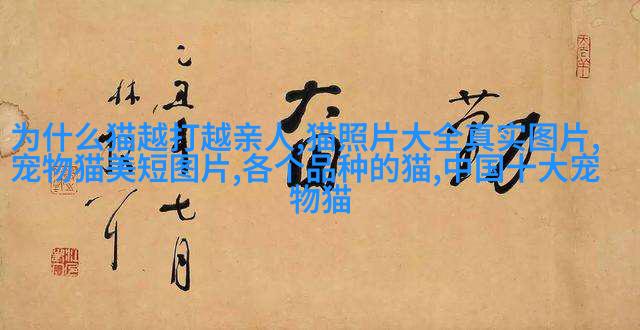 为什么猫越打越亲人,猫照片大全真实图片,
宠物猫英短图片,各个品种的猫,中国十大宠
物猫
乙丑年七月